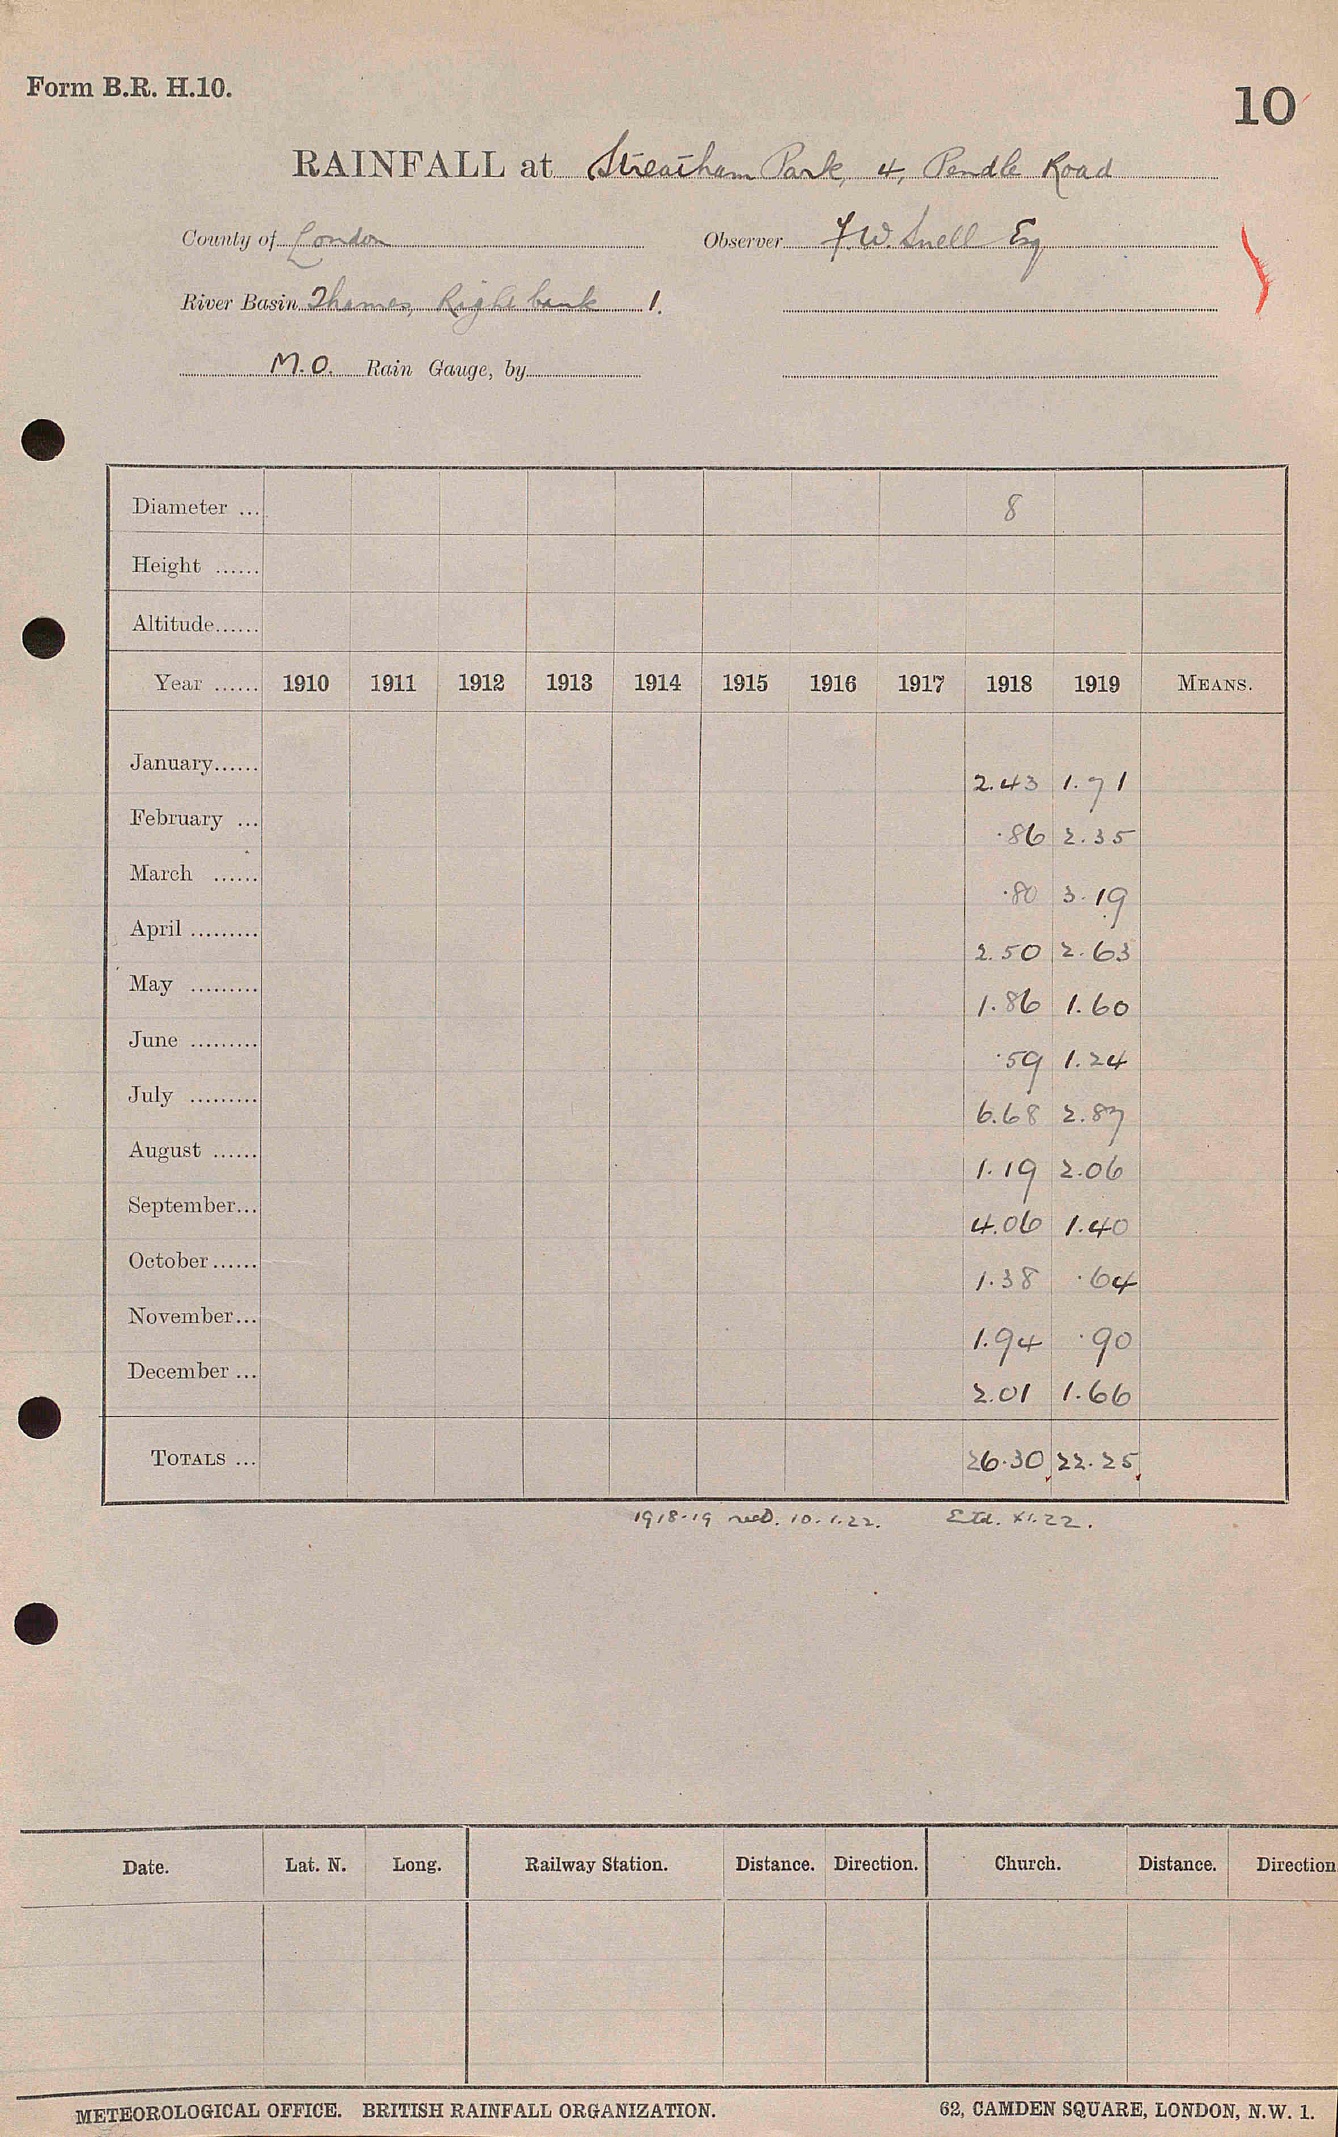 Form B.R. H.10.
10
RAINFALL at Streatham Park, 4, Pendle Road
County of London Observer F.W. Snell Esq
River Basin Thames, Right bank 1.
M.O. Rain Gauge, by
Diameter ... 8
Height ......
Altitude......
Year ...... 1910 1911 1912 1913 1914 1915 1916 1917 1918 1919 MEANS.
January...... 2.43 1.71
February ... .86 2.35
March ...... .80 3.19
April ......... 2.50 2.63
May ......... 1.86 1.60
June ......... .59 1.24
July ......... 6.68 2.87
August ...... 1.19 2.06
September... 4.06 1.40
October...... 1.38 .64
November... 1.94 .90
December ... 2.01 1.66
TOTALS ... 26.30 22.25
1918-19 recd. 10.1.22. Etd. XI.22.
Date. Lat. N. Long. Railway Station. Distance. Direction. Church. Distance. Direction
METEOROLOGICAL OFFICE. BRITISH RAINFALL ORGANIZATION. 62, CAMDEN SQUARE, LONDON, N.W. 1.